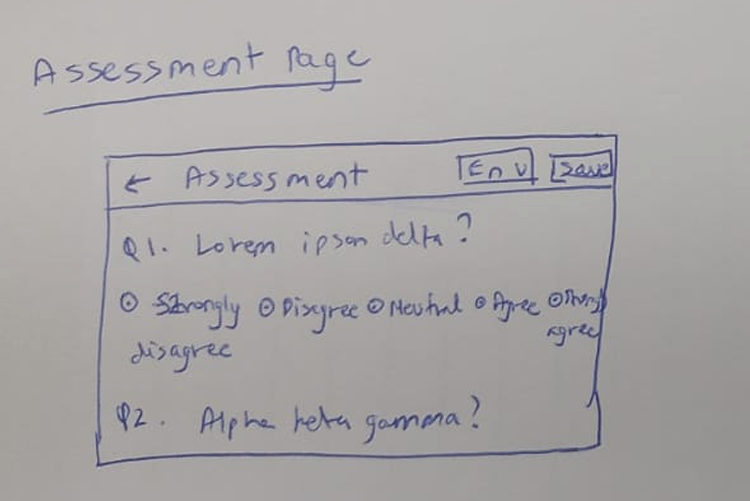 Assessment Page
← Assessment En v Save
Q1. Lorem ipson delta?
Strongly disagree Disgree Neutral Agree Strongly agree
Q2. Alpha beta gamma?